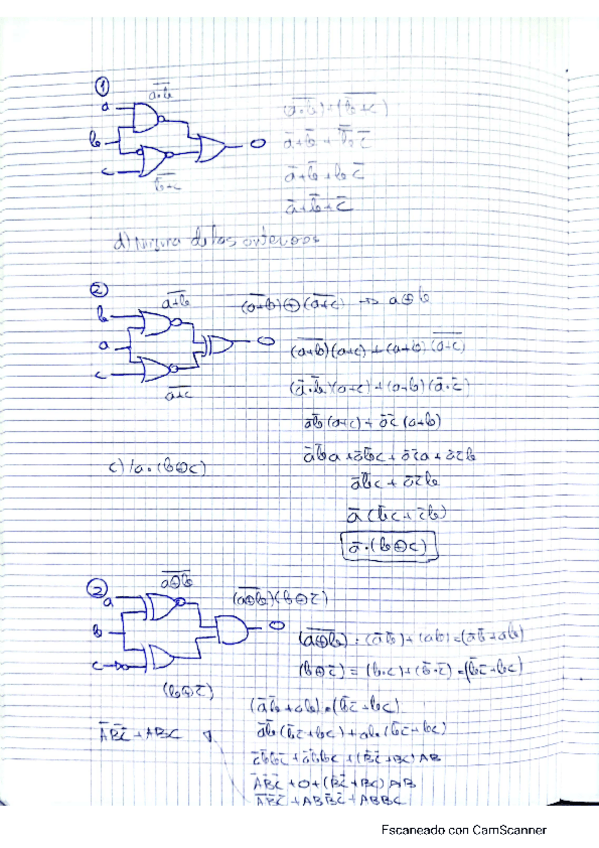 ①
a·b̅
a
b
c
b̅+c
a̅+b̅+c̅
d) ninguna de las anteriores
②
a+b
(a+b)⊕(a+c) → a⊕b
b
a
c
a+c
(a+b)(a+c)+(a+b)(a+c)
(a̅·b̅)(a+c)+(a+b)(a̅·c̅)
a̅b̅(a+c)+a̅c̅(a+b)
a̅b̅a+a̅b̅c+a̅c̅a+a̅c̅b
c) /a·(b⊕c)
a̅b̅c+a̅c̅b
a̅(b̅c+c̅b)
a̅·(b⊕c)
a⊕b
(a⊕b)(b⊕c̅)
a
b
c
(a⊕b)=(a̅b̅)+(ab)=(a̅b̅+ab)
(b⊕c̅)=(b·c)+(b̅·c̅)=(b̅c̅+bc)
(b⊕c̅)
(a̅b̅+ab)·(b̅c̅+bc)
A̅B̅C̅+ABC
a̅b̅(b̅c̅+bc)+ab(b̅c̅+bc)
a̅b̅b̅c̅+a̅b̅bc+(B̅C̅+BC)AB
A̅B̅C̅+0+(B̅C̅+BC)AB
A̅B̅C̅+ABB̅C̅+ABBC
Escaneado con CamScanner